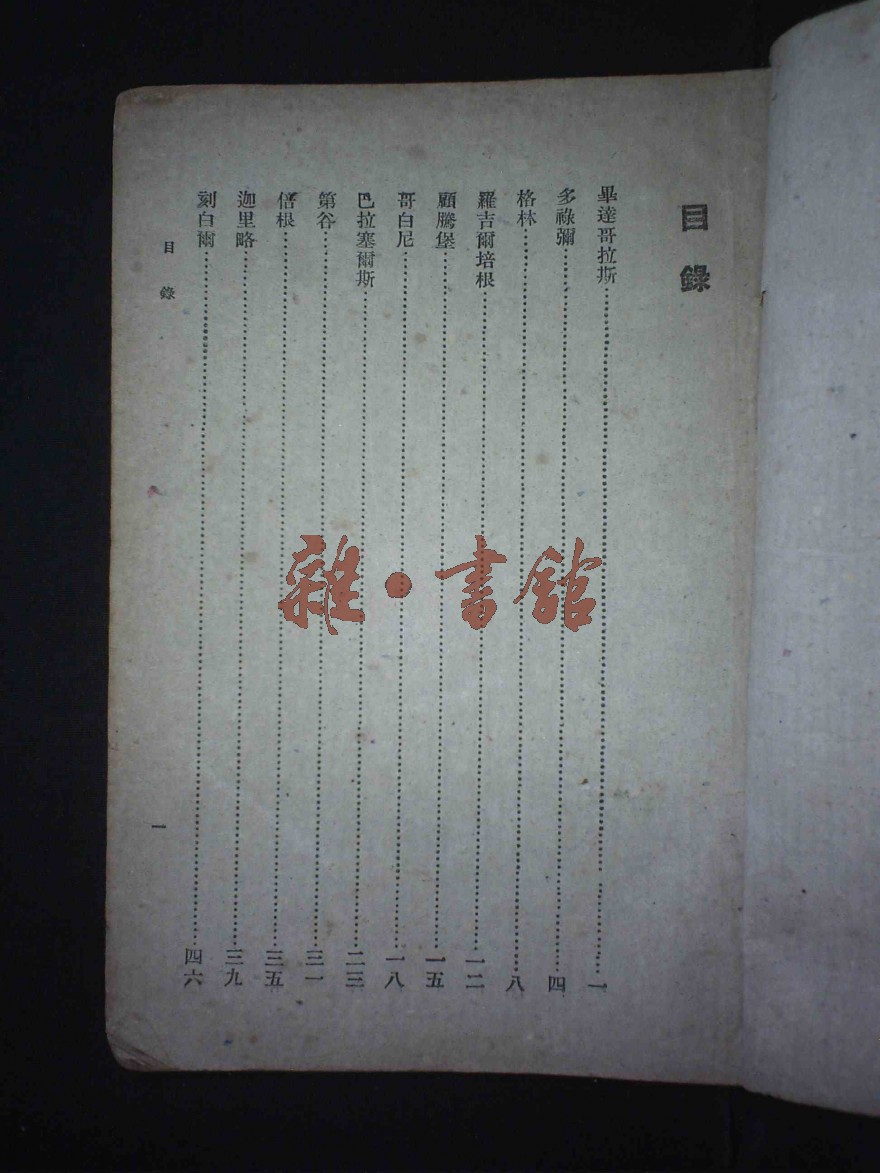 目錄
畢達哥拉斯……一
多祿彌……四
格林……八
羅吉爾培根……一二
顧騰堡……一五
哥白尼……一八
巴拉塞爾斯……二三
第谷……三一
倍根……三五
迦里略……三九
刻白爾……四六
目錄
一
雜·書館